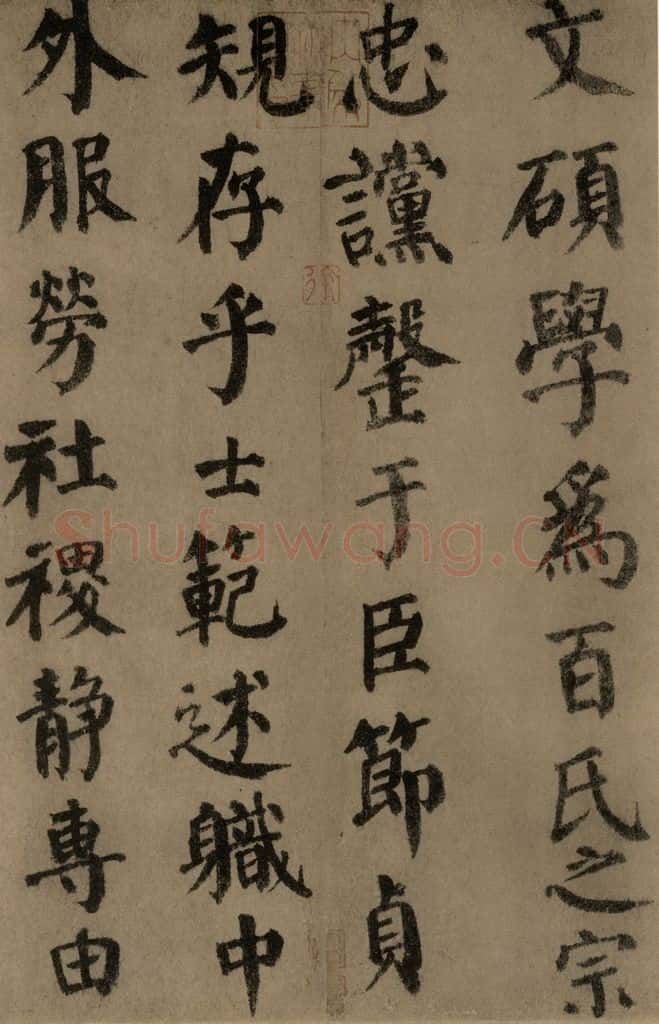 文碩學爲百氏之宗
忠讜罄于臣節貞
䂓存乎士範述軄中
外服勞社禝静專由
Shufawang.cn